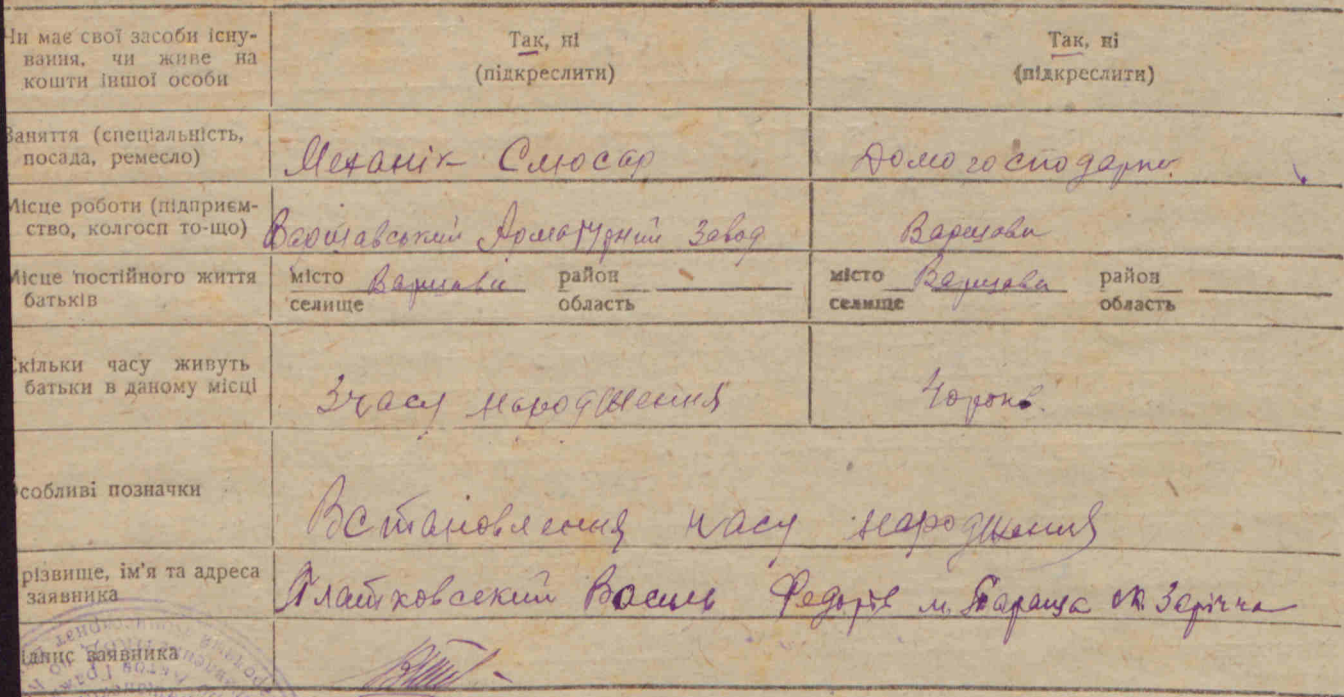 Чи має свої засоби існу-
вання, чи живе на
кошти іншої особи
Так, ні
(підкреслити)
Так, ні
(підкреслити)
Заняття (спеціальність,
посада, ремесло)
Механік Слюсар
Домогосподарка
Місце роботи (підприєм-
ство, колгосп то-що)
Варшавський Арматурний Завод
Варшава
Місце постійного життя
батьків
місто Варшава район
селище область
місто Варшава район
селище область
Скільки часу живуть
батьки в даному місці
З часу народження
Особливі позначки
Встановлення часу народження
різвище, ім'я та адреса
заявника
Платковський Василь Федорів м. Тараща Зарічна
ідпис заявника